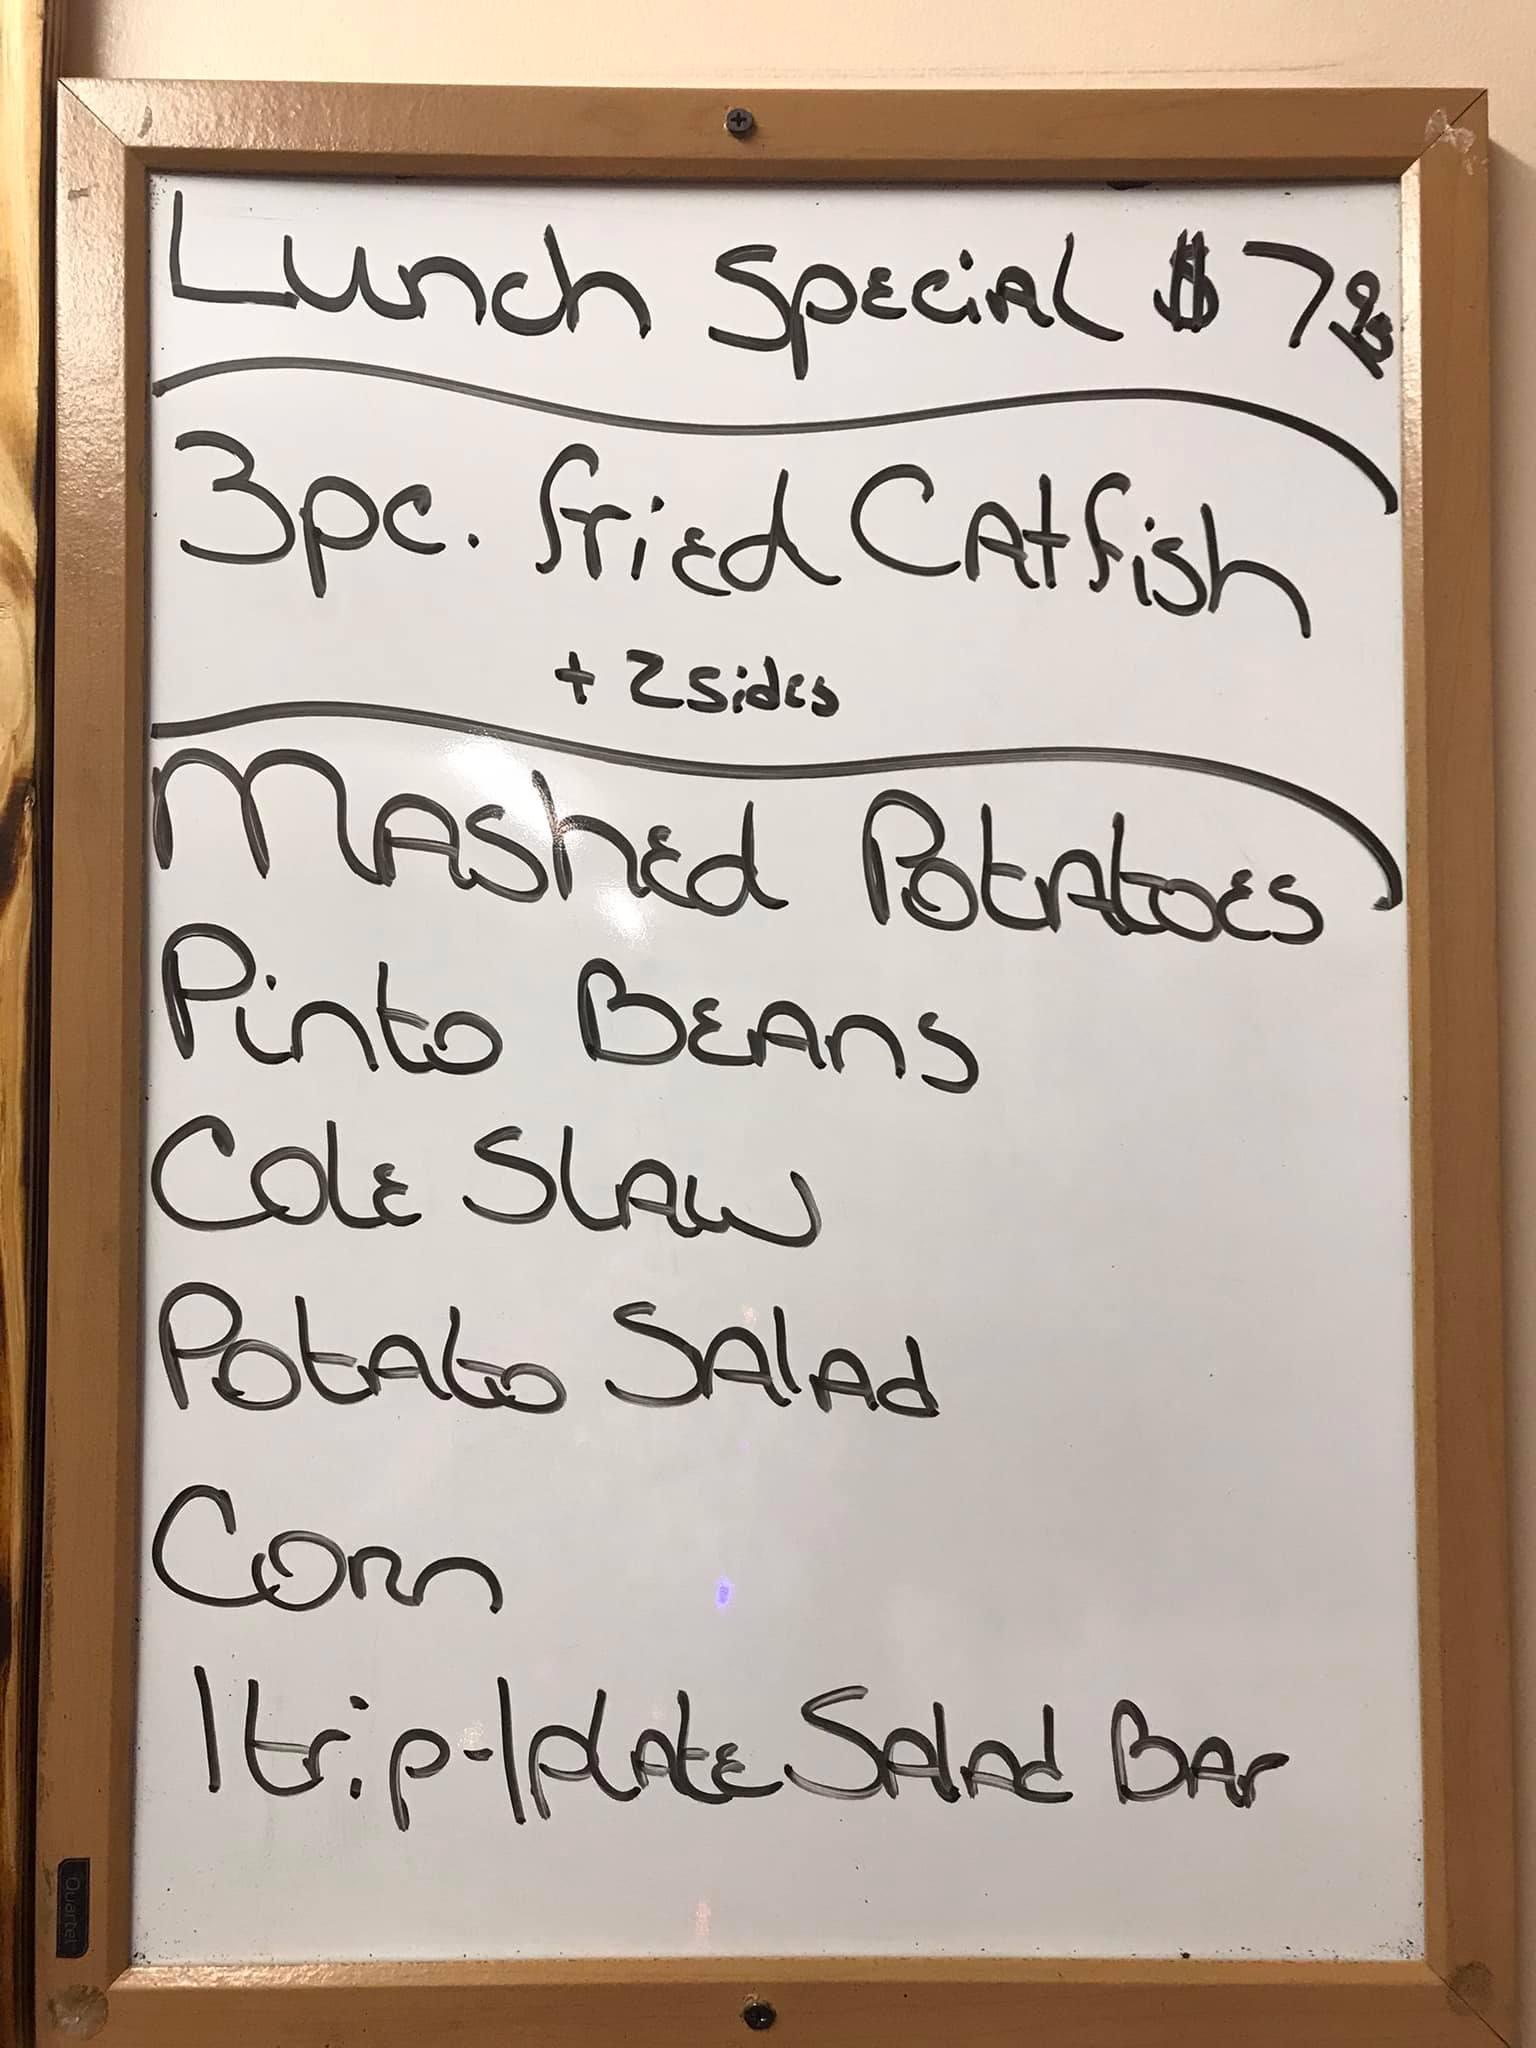 Lunch Special $ 7 95
3pc. fried Catfish
+ 2 sides
Mashed Potatoes
Pinto Beans
Cole Slaw
Potato Salad
Corn
1 trip-1 plate Salad Bar
Quartet